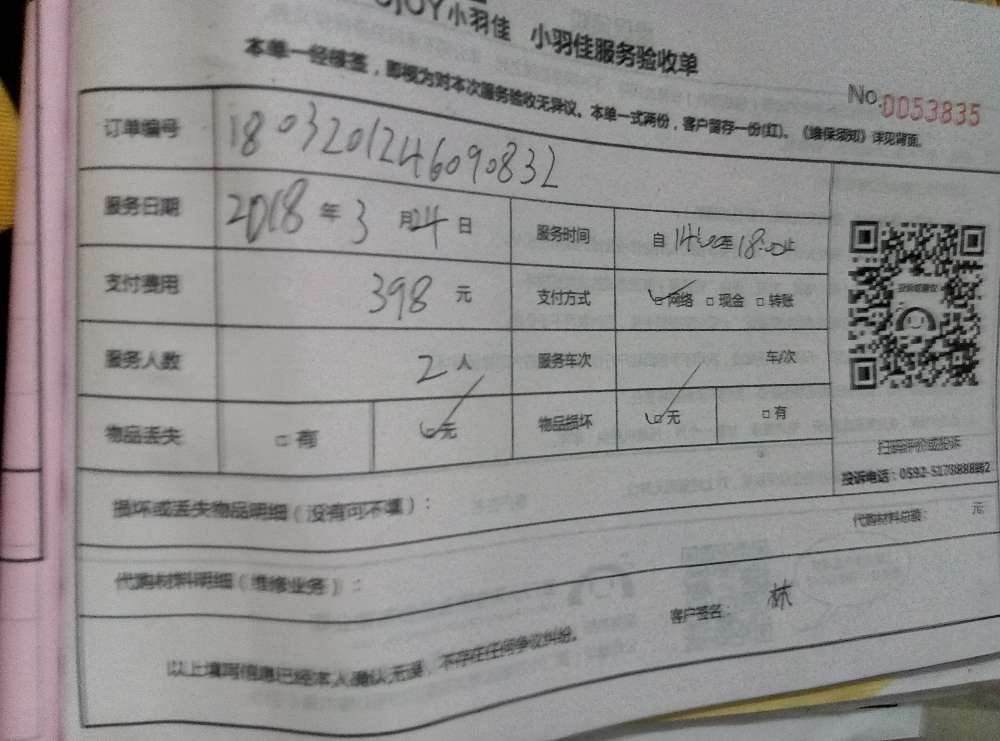 小羽佳 小羽佳服务验收单
本单一经核签，即视为对本次服务验收无异议。本单一式两份，客户留存一份(红)。《维保须知》详见背面。
No.0053835
订单编号 1803201246090832
服务日期 2018年3月24日 服务时间 自14:00至18:00止
支付费用 398元 支付方式 ☑网络 □现金 □转账
服务人数 2人 服务车次 车/次
物品丢失 □有 ☑无 物品损坏 ☑无 □有
扫码评价或投诉
投诉电话：0592-5178888转2
损坏或丢失物品明细（没有可不填）：
代购材料总额： 元
代购材料明细（维修业务）：
以上填写信息已经本人确认无误，不存在任何争议纠纷。 客户签名： 林